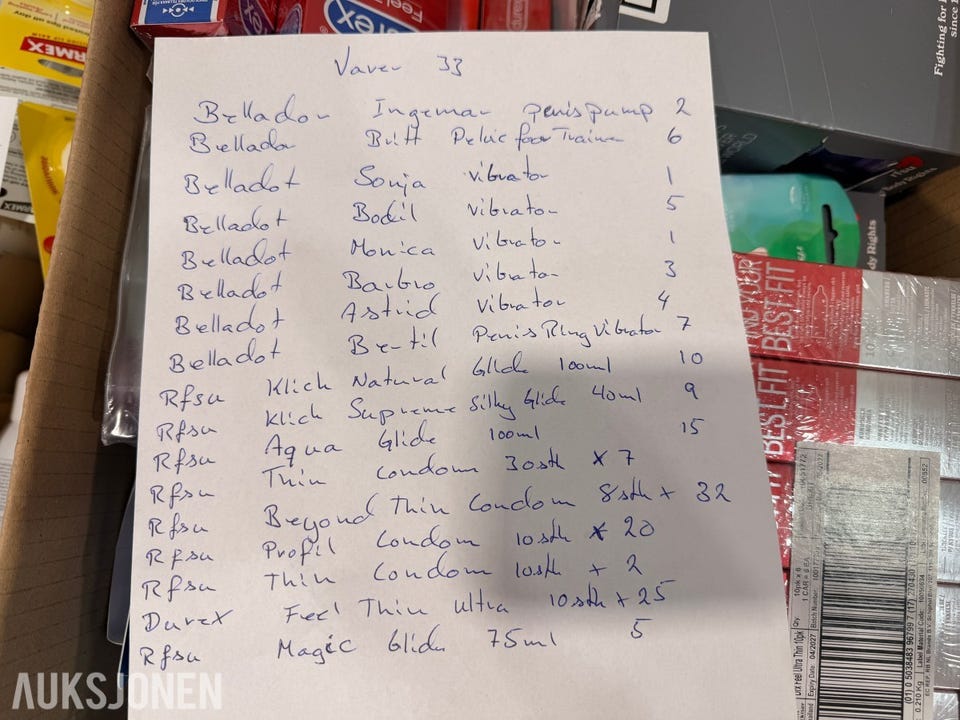 Varer 33
Belladot Ingemar penispump 2
Bellado Britt Pelvic floor Trainer 6
Belladot Sonja vibrator 1
Belladot Bodil vibrator 5
Belladot Monica vibrator 1
Belladot Barbro vibrator 3
Belladot Astrid vibrator 4
Belladot Bertil Penis Ring vibrator 7
Rfsu Klick Natural Glide 100ml 10
Rfsu Klick Supreme Silky Glide 40ml 9
Rfsu Aqua Glide 100ml 15
Rfsu Thin condom 30stk x 7
Rfsu Beyond Thin Condom 8stk x 32
Rfsu Profil Condom 10stk x 20
Rfsu Thin Condom 10stk x 2
Durex Feel Thin Ultra 10stk x 25
Rfsu Magic Glide 75ml 5
Fighting for
Body Rights
BEST FIT
BEST FIT
AUKSJONEN